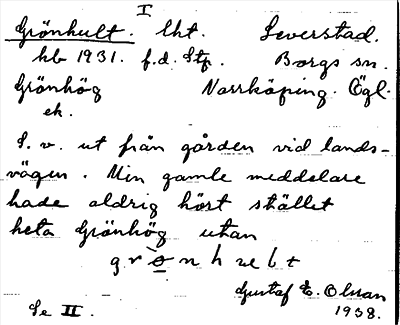 I
Grönhult. lht. Leverstad.
hb 1931. f.d. Stp. Borgs sn.
Grönhög Norrköping. Ögl.
ek.
S. v. ut från gården vid lands-
vägen. Min gamle meddelare
hade aldrig hört stället
heta Grönhög utan
Gustaf E. Olsson
Se II. 1938.